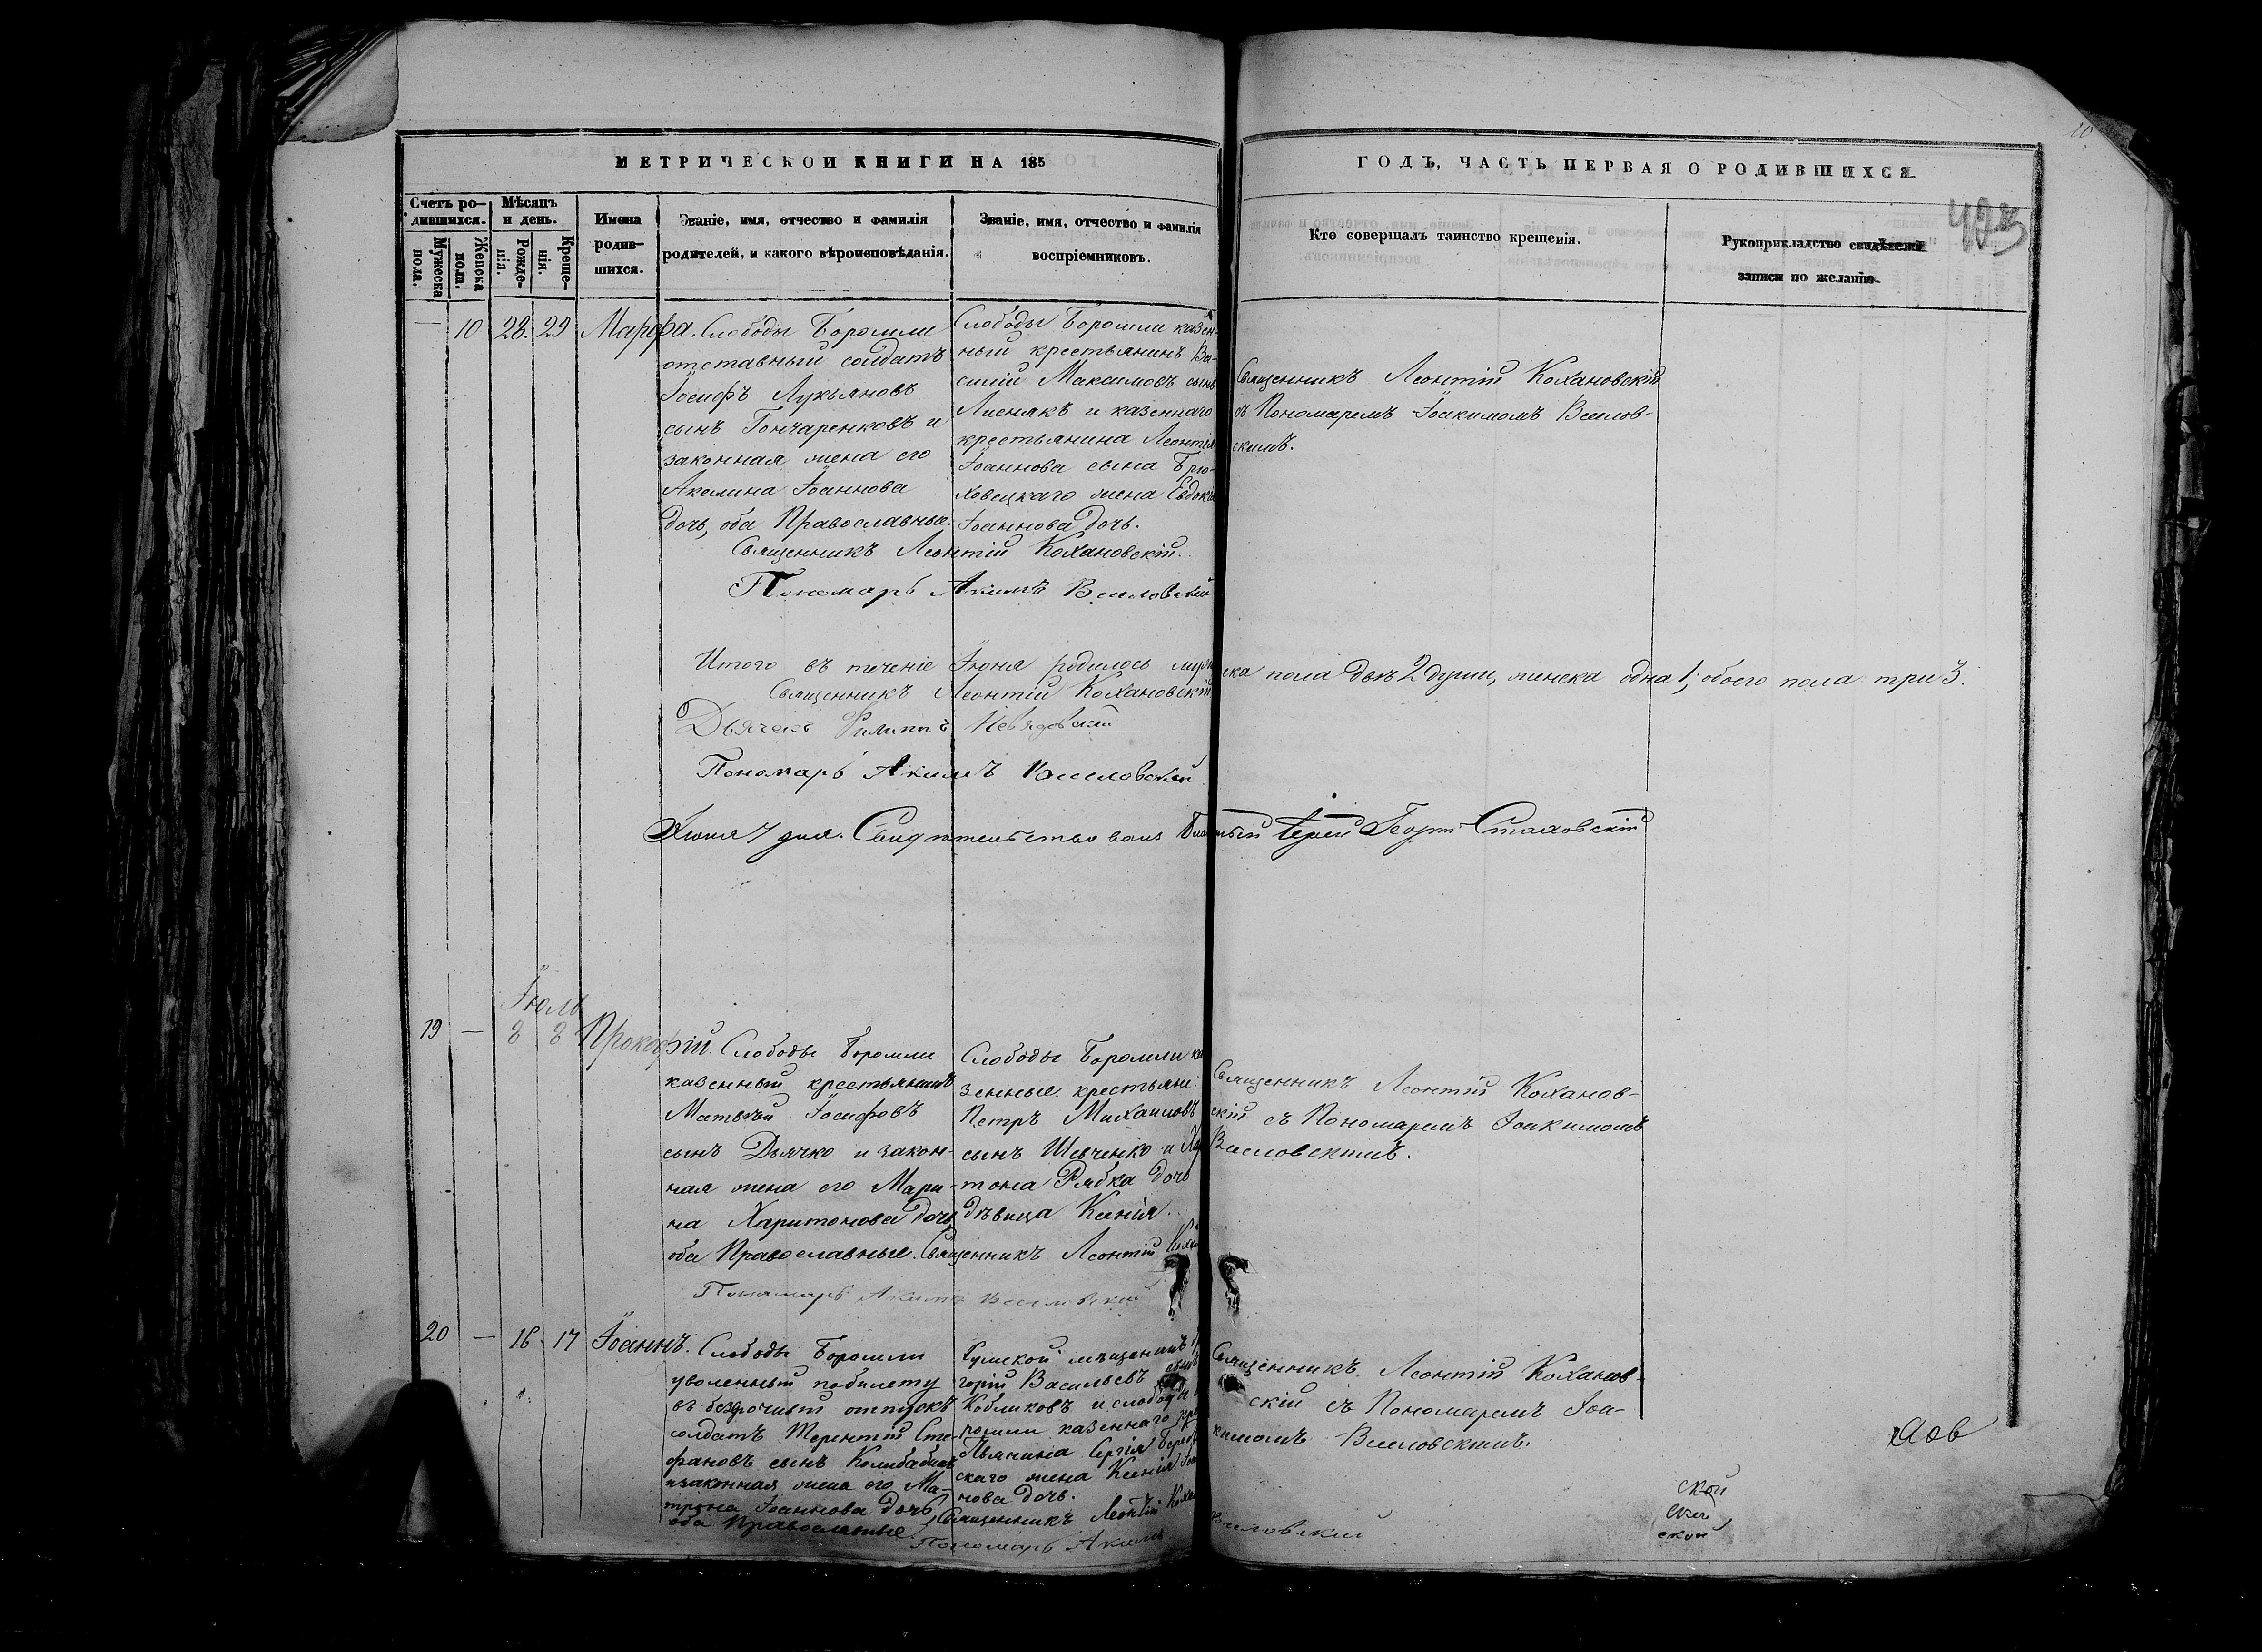 МЕТРИЧЕСКОИ КНИГИ НА 185
ГОДЪ, ЧАСТЬ ПЕРВАЯ О РОДИВШИХСЯ
10
493
Счетъ ро-
дившихся.
Мужеска
пола.
Женска
пола.
Мѣсяцъ
и день.
Рожде-
нія.
Креще-
нія.
Имена
родив-
шихся.
Званіе, имя, отчество и фамилія
родителей, и какого вѣроисповѣданія.
Званіе, имя, отчество и фамилія
воспріемниковъ.
Кто совершалъ таинство крещенія.
Рукоприкладство свидѣтелей
записи по желанію
— 10 28. 29 Марфа.
Слободы Боромли
отставный солдатъ
Іосифъ Лукьяновъ
сынъ Гончаренковъ и
законная жена его
Акилина Іоаннова
дочь, оба Православные.
Слободы Боромли казен-
ный крестьянинъ Ва-
силій Максимовъ сынъ
Лиснякъ и казеннаго
крестьянина Леонтія
Іоаннова сына Брю-
ховецкаго жена Евдокія
Іоаннова дочь.
Священникъ Леонтій Кохановскій
съ Пономаремъ Іоакимомъ Вселов-
скимъ.
Священникъ Леонтій Кохановскій.
Пономарь Акимъ Вселовскій
Итого въ теченіе Іюня родилось мужеска пола двѣ 2 души, женска одна 1, обоего пола три 3.
Священникъ Леонтій Кохановскій
Дьячекъ Филиппъ
Пономарь Акимъ Вселовскій
Іюля 7 дня. Свидѣтельствовалъ Іерей Стаховскій
Іюль
19 — 8 8 Прокофій.
Слободы Боромли
казенный крестьянинъ
Матвѣй Іосифовъ
сынъ Дьячко и закон-
ная жена его Мари-
на Харитонова дочь
оба Православные.
Слободы Боромли ка
зенные крестьяне:
Петръ Михаиловъ
сынъ Шевченко и Ха
тона Рябка дочь
дѣвица Ксенія.
Священникъ Леонтій Коханов-
скій съ Пономаремъ Іоакимомъ
Вселовскимъ.
Священникъ Леонтій Коха
Пономарь Акимъ Вселовскій
20 — 16 17 Іоаннъ.
Слободы Боромли
уволенный по билету
въ безсрочный отпускъ
солдатъ Терентій Сте-
фановъ сынъ Колибабинъ
и законная жена его Ма-
трона Іоаннова дочь,
оба Православные.
Сумской мѣщанинъ
горій Васильевъ сынъ
Кобликовъ и слободы
ромли казеннаго кре
стьянина Сергія
скаго жена Ксенія Іоан
нова дочь.
Священникъ Леонтій Коханов-
скій съ Пономаремъ Іоа-
кимомъ Вселовскимъ.
Священникъ Леонтій Коха
Пономарь Акимъ Вселовскій
ской
ской